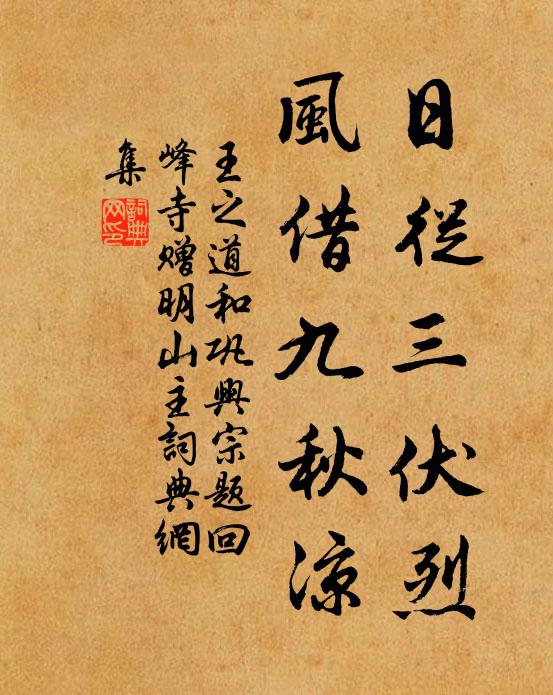 日從三伏烈
風借九秋涼
王之道和巩興宗題回
峰寺贈明山主詞典網
集
詞典
网印